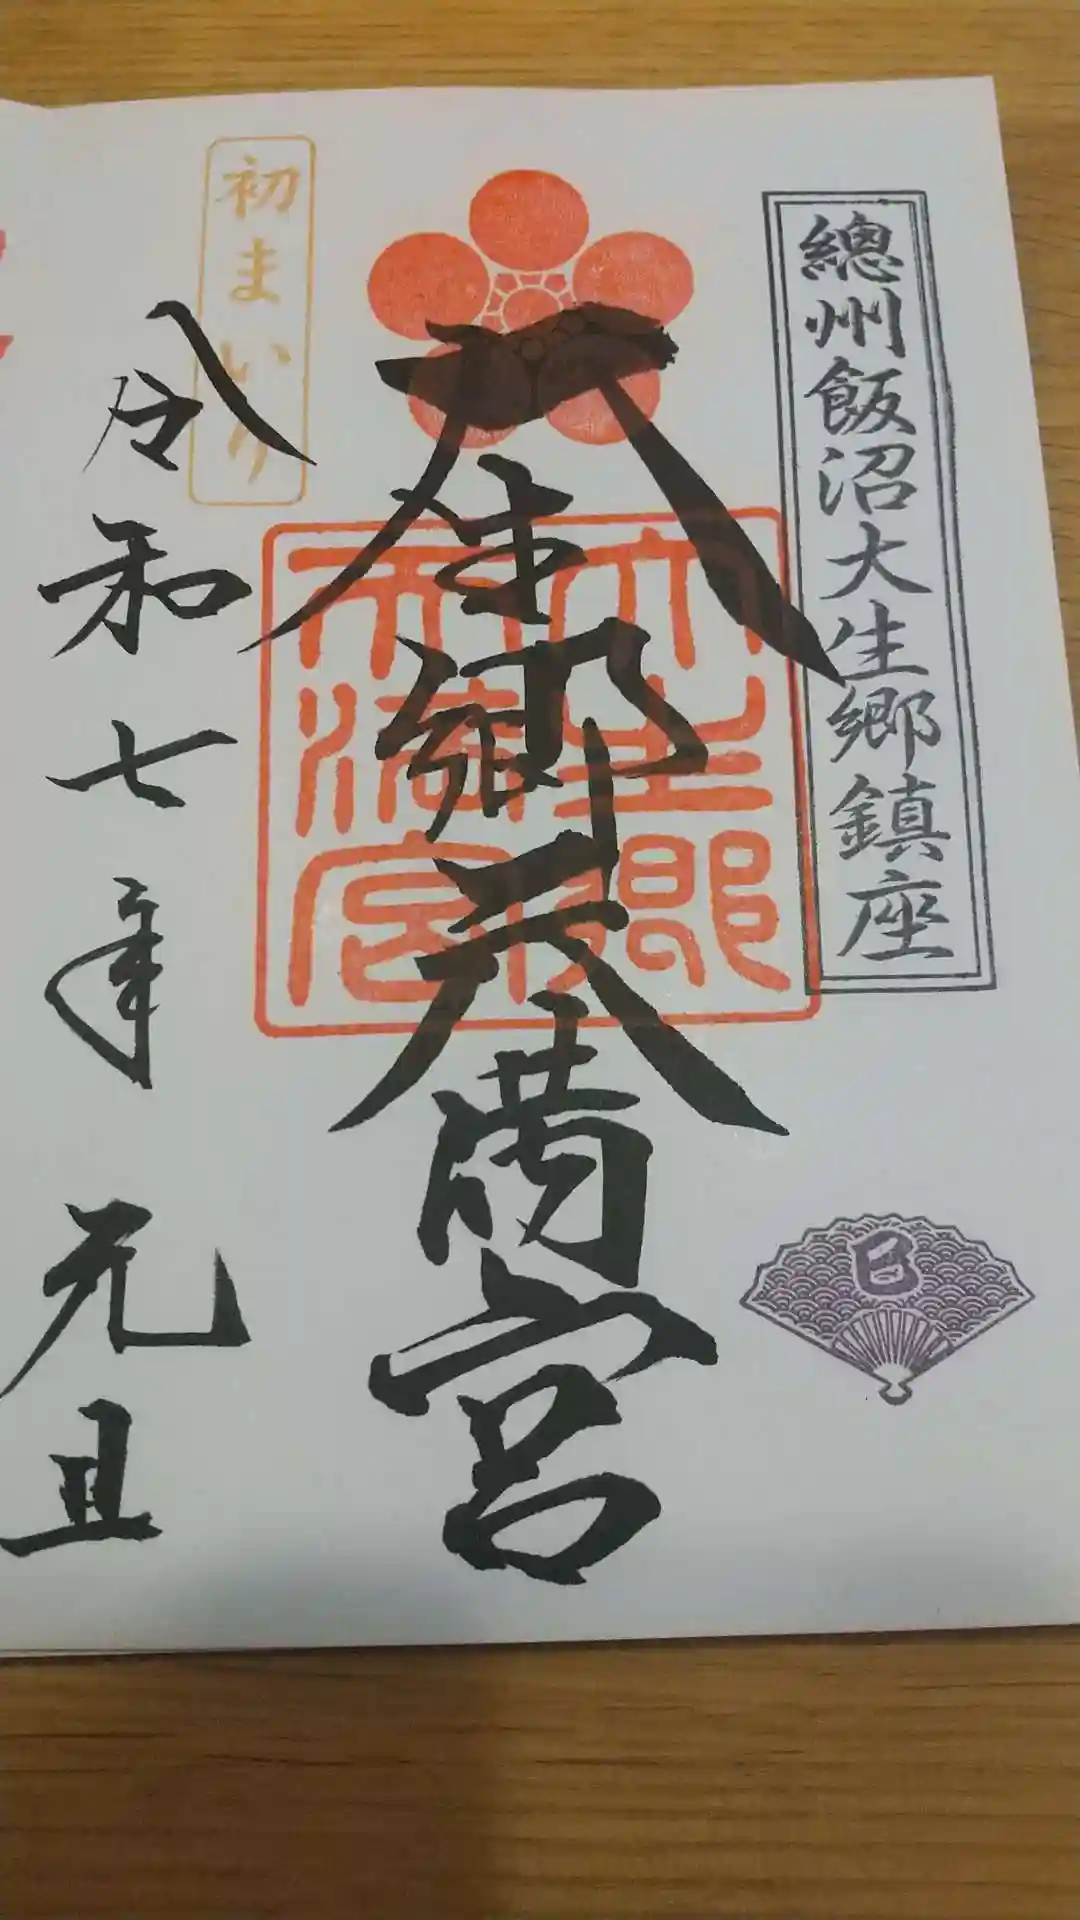 總州飯沼大生郷鎮座
巳
大生郷天満宮
大生郷
天満宮
初まいり
令和七年 元旦